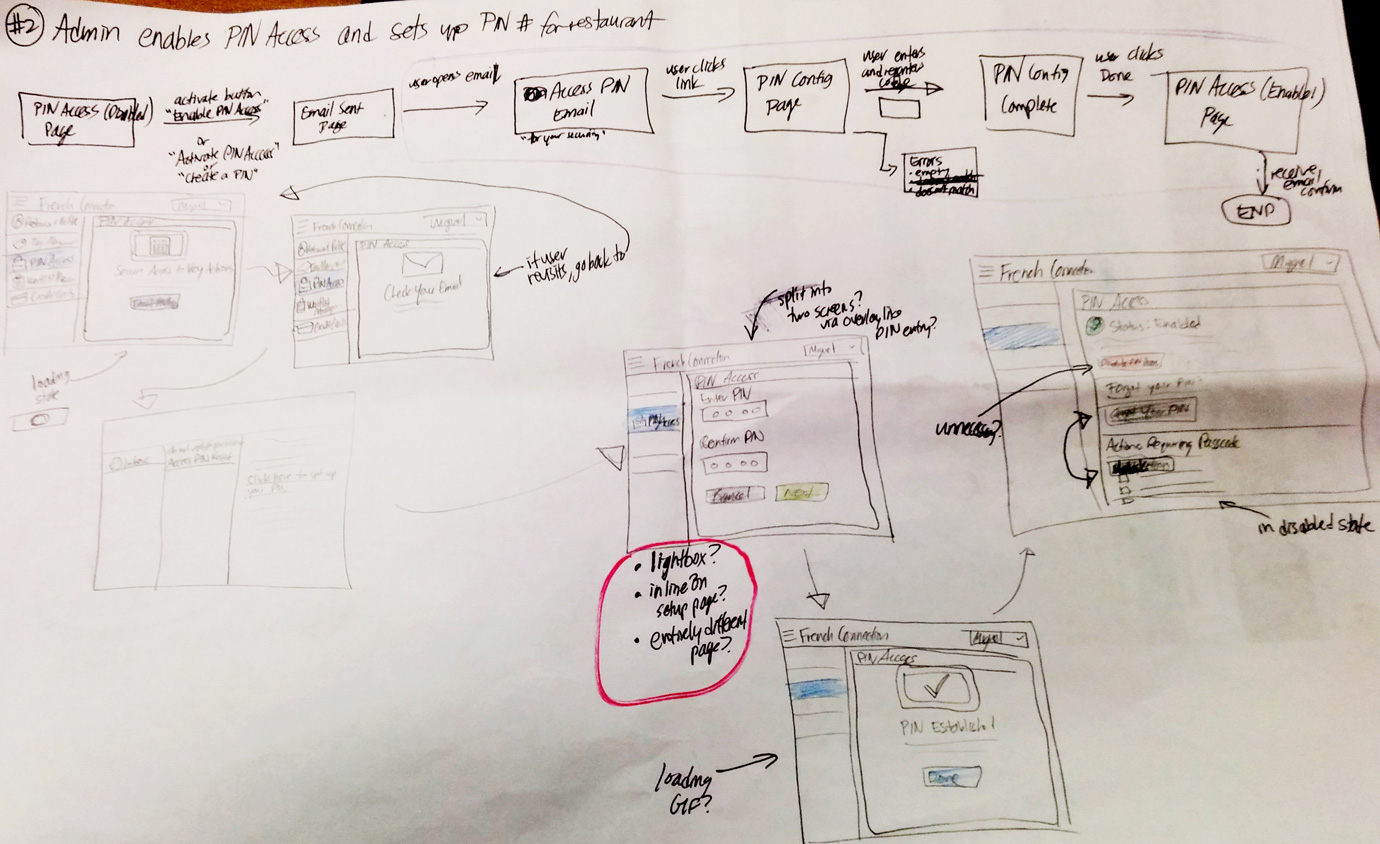 #2 Admin enables PIN Access and sets up PIN # for restaurant
PIN Access (Disabled)
Page
activate button
"Enable PIN Access"
or
"Activate PIN Access"
or
"Create a PIN"
Email Sent
Page
user opens email
Access PIN
Email
"for your security"
user clicks
link
PIN Config
Page
user enters
and reenters
code
Errors
• empty
• doesn't match
PIN Config
Complete
user clicks
Done
PIN Access (Enabled)
Page
receive
email
confirm
END
French Connection
Miguel
PIN Access
PIN Access
Secure Access to Key Actions
loading
state
French Connection
Miguel
PIN Access
PIN Access
Check Your Email
if user
revisits, go back to
Inbox
Access PIN Reset
Click here to set up
your PIN
split into
two screens?
via overlay like
PIN entry?
French Connection
Miguel
PIN Access
PIN Access
Enter PIN
Confirm PIN
Cancel
Next
• lightbox?
• inline on
setup page?
• entirely different
page?
French Connection
Miguel
PIN Access
PIN Established
Done
loading
GIF?
French Connection
Miguel
PIN Access
Status: Enabled
Forgot your PIN?
Forgot your PIN
Actions Requiring Passcode
unnecessary?
in disabled state